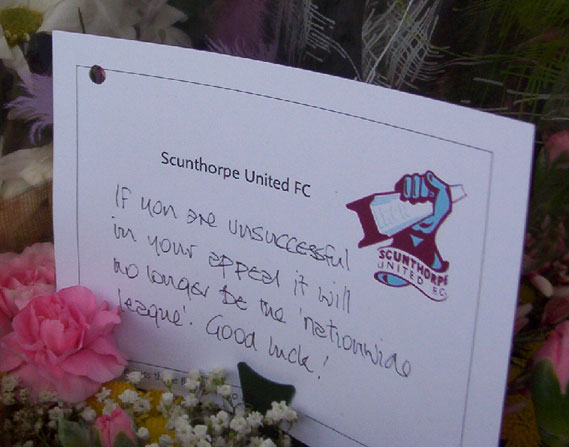 Scunthorpe United FC
If you are unsuccessful
in your appeal it will
no longer be the 'nationwide
league'. Good luck!
SCUNTHORPE
UNITED FC